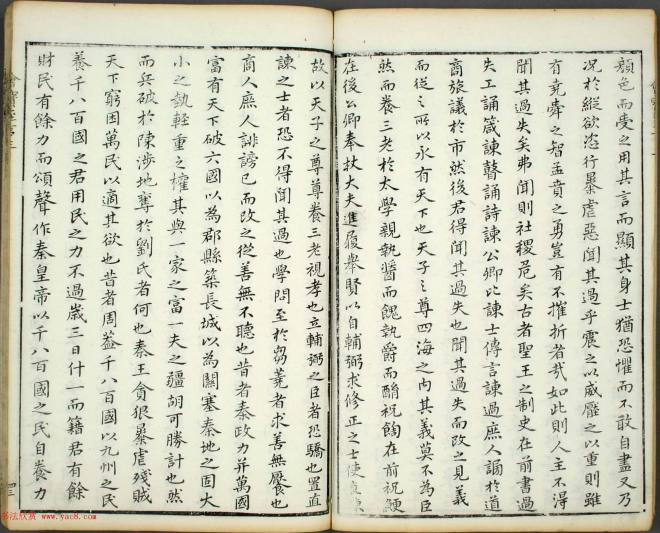 顏色而受之用其言而顯其身士猶恐懼而不敢自盡又乃
况於縱欲恣行暴虐惡聞其過乎震之以威壓之以重則雖
有堯舜之智孟賁之勇豈有不摧折者哉如此則人主不得
聞其過失矣弗聞則社稷危矣古者聖王之制史在前書過
失工誦箴諫瞽誦詩諫公卿比諫士傳言諫過庶人謗於道
商旅議於市然後君得聞其過失也聞其過失而改之見義
而從之所以永有天下也天子之尊四海之内其義莫不為臣
然而養三老於太學親執醬而餽執爵而酳祝餉在前祝鯁
在後公卿奉杖大夫進履舉賢以自輔弼求修正之士使直諫
故以天子之尊尊養三老視孝也立輔弼之臣者恐驕也置直
諫之士者恐不得聞其過也學問至於芻蕘者求善無饜也
商人庶人誹謗己而改之從善無不聽也昔者秦政力并萬國
富有天下破六國以為郡縣築長城以為關塞秦地之固大
小之埶輕重之權其與一家之富一夫之彊胡可勝計也然
而兵破於陳涉地奪於劉氏者何也秦王貪狠暴虐殘賊
天下窮困萬民以適其欲也昔者周葢千八百國以九州之民
養千八百國之君用民之力不過歲三日什一而籍君有餘
財民有餘力而頌聲作秦皇帝以千八百國之民自養力
书法欣赏 www.yac8.com